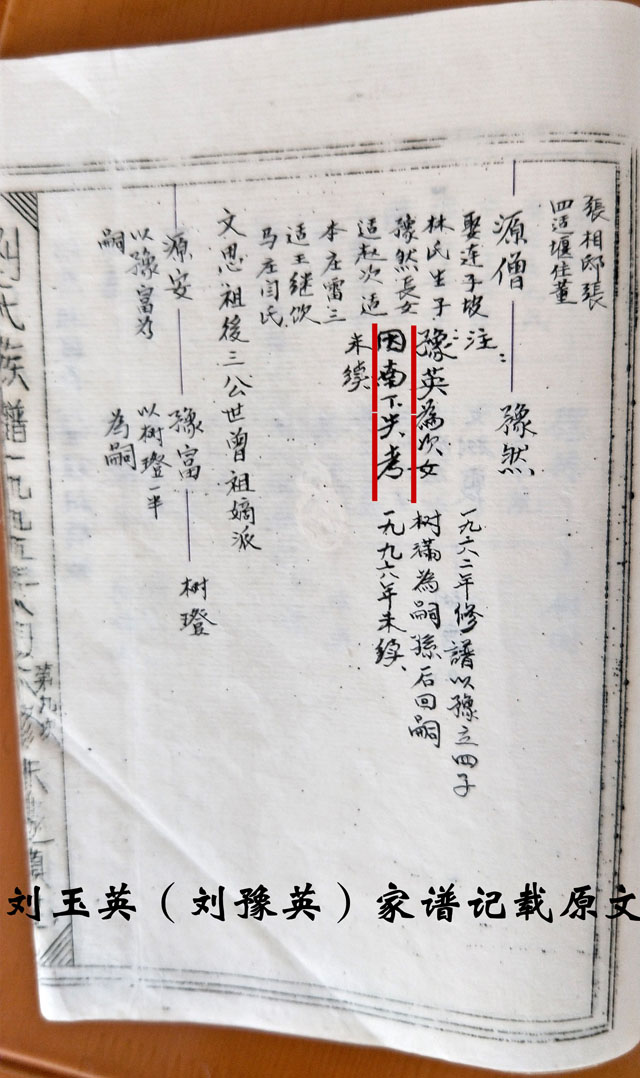 張相邸張
四适堰住董
源僧
豫然
娶連子坡
林氏生子
豫然長女
适赵次适
本庄雷三
适王继饮
马庄闫氏
注：
豫英為次女
因南下失考
未续
一九六二年修譜以豫立四子
树满為嗣孫后回嗣
一九九六年未续、
文思祖後三公世曾祖嫡派
源安
以豫富为
嗣
豫富
以树璒一半
為嗣
树璒
刘氏族譜一九九五年
刘玉英（刘豫英）家谱记载原文